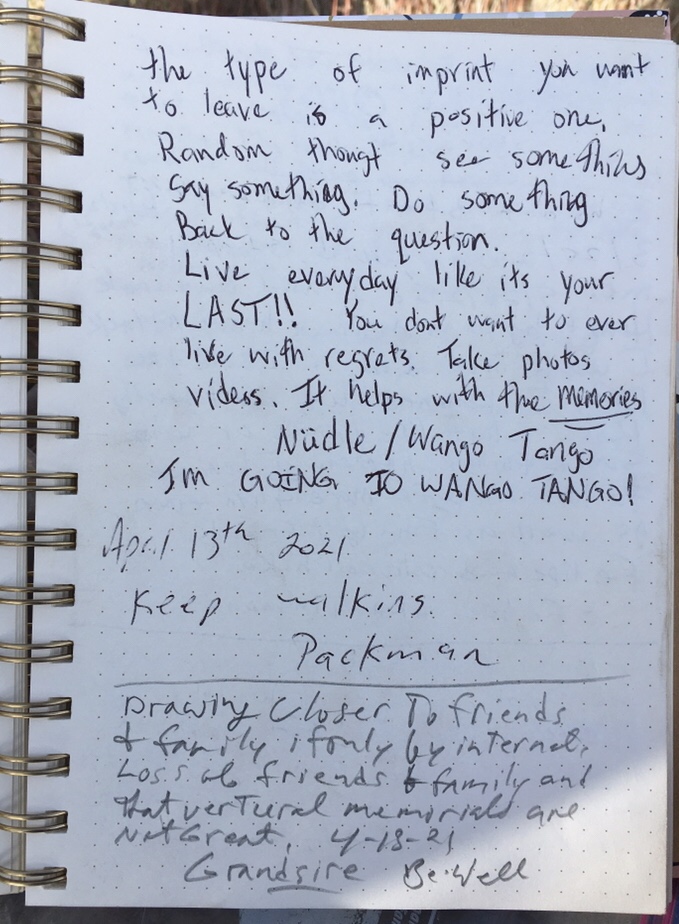 the type of imprint you want
to leave is a positive one,
Random thougt see something
Say something. Do something
Back to the question.
Live everyday like its your
LAST!! You dont want to ever
live with regrets. Take photos
videos. It helps with the memories
Nüdle / Wango Tango
I'm GOING TO WANGO TANGO!
April 13th 2021
Keep walking.
Packman
Drawing Closer To friends
& family if only by internet.
Loss of friends & family and
that vertural memorials are
Not Great. 4-13-21
Grandsire Be Well